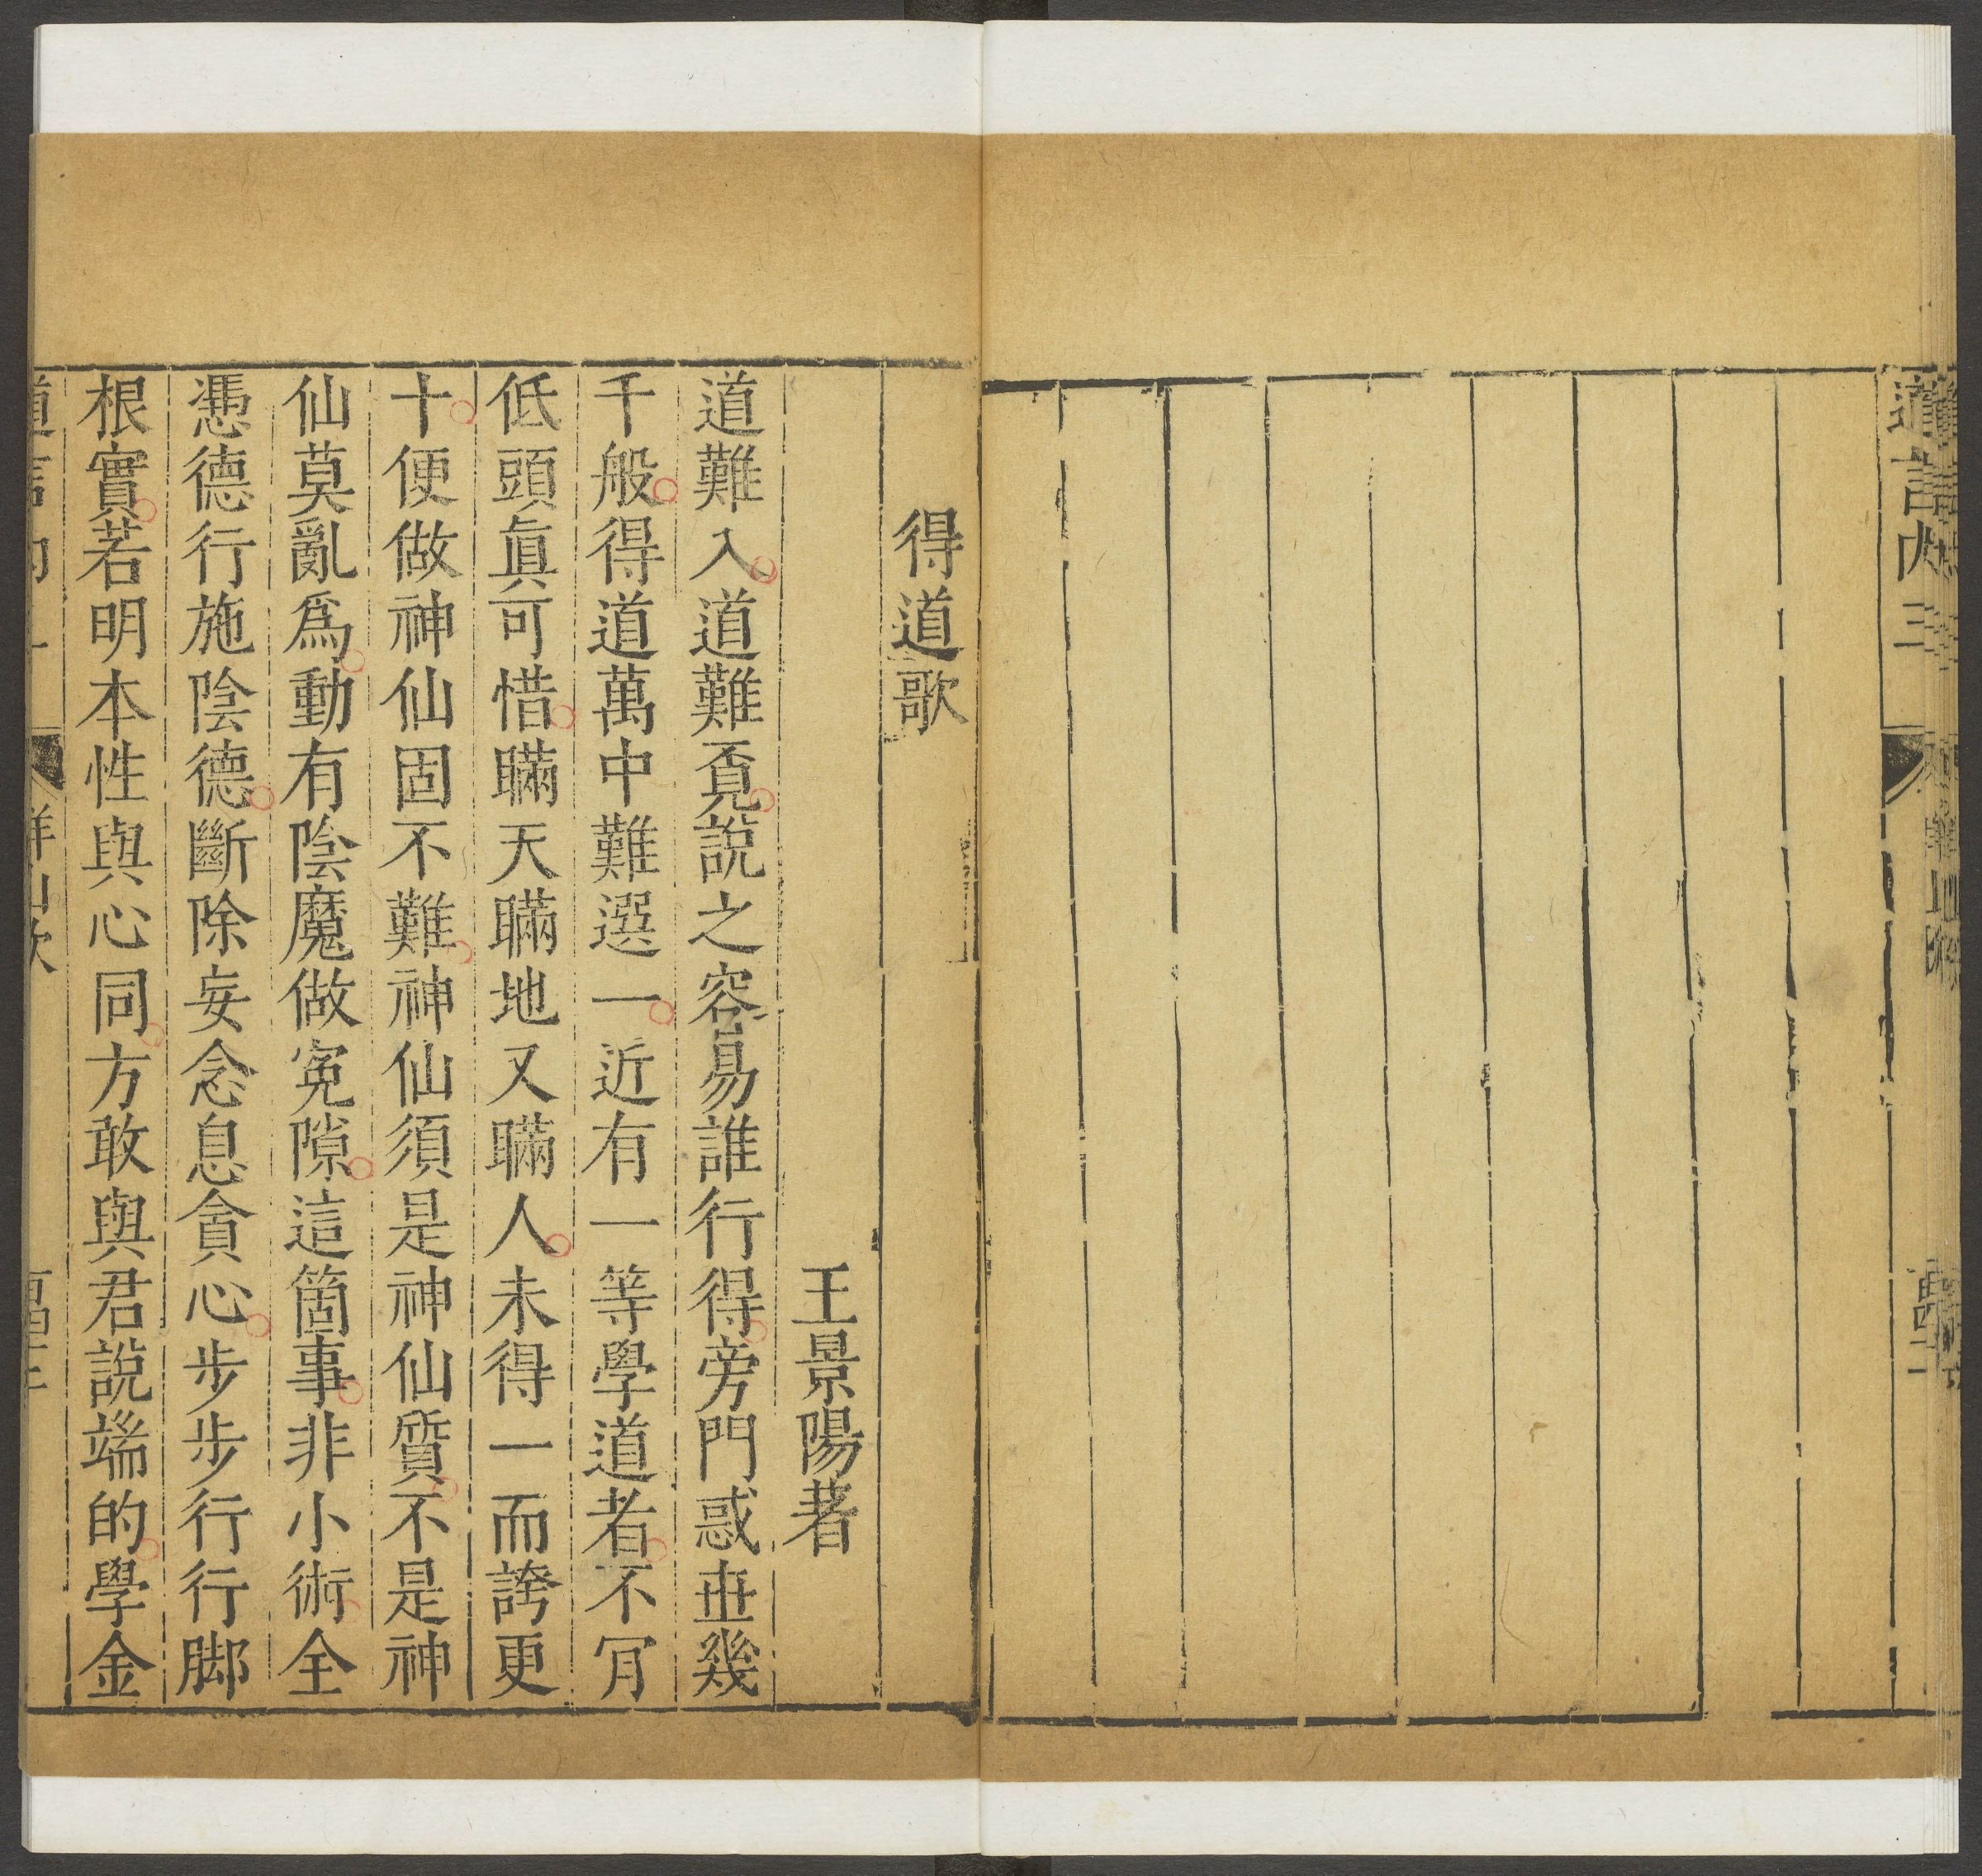 道言内三
得道歌
王景陽著
道難入道難覔說之容易誰行得旁門惑丗幾
千般得道萬中難選一近有一等學道者不肎
低頭眞可惜瞞天瞞地又瞞人未得一而誇更
十便做神仙固不難神仙須是神仙質不是神
仙莫亂爲動有陰魔做寃隙這箇事非小術全
憑德行施陰德斷除妄念息貪心步步行行脚
根實若明本性與心同方敢與君說端的學金